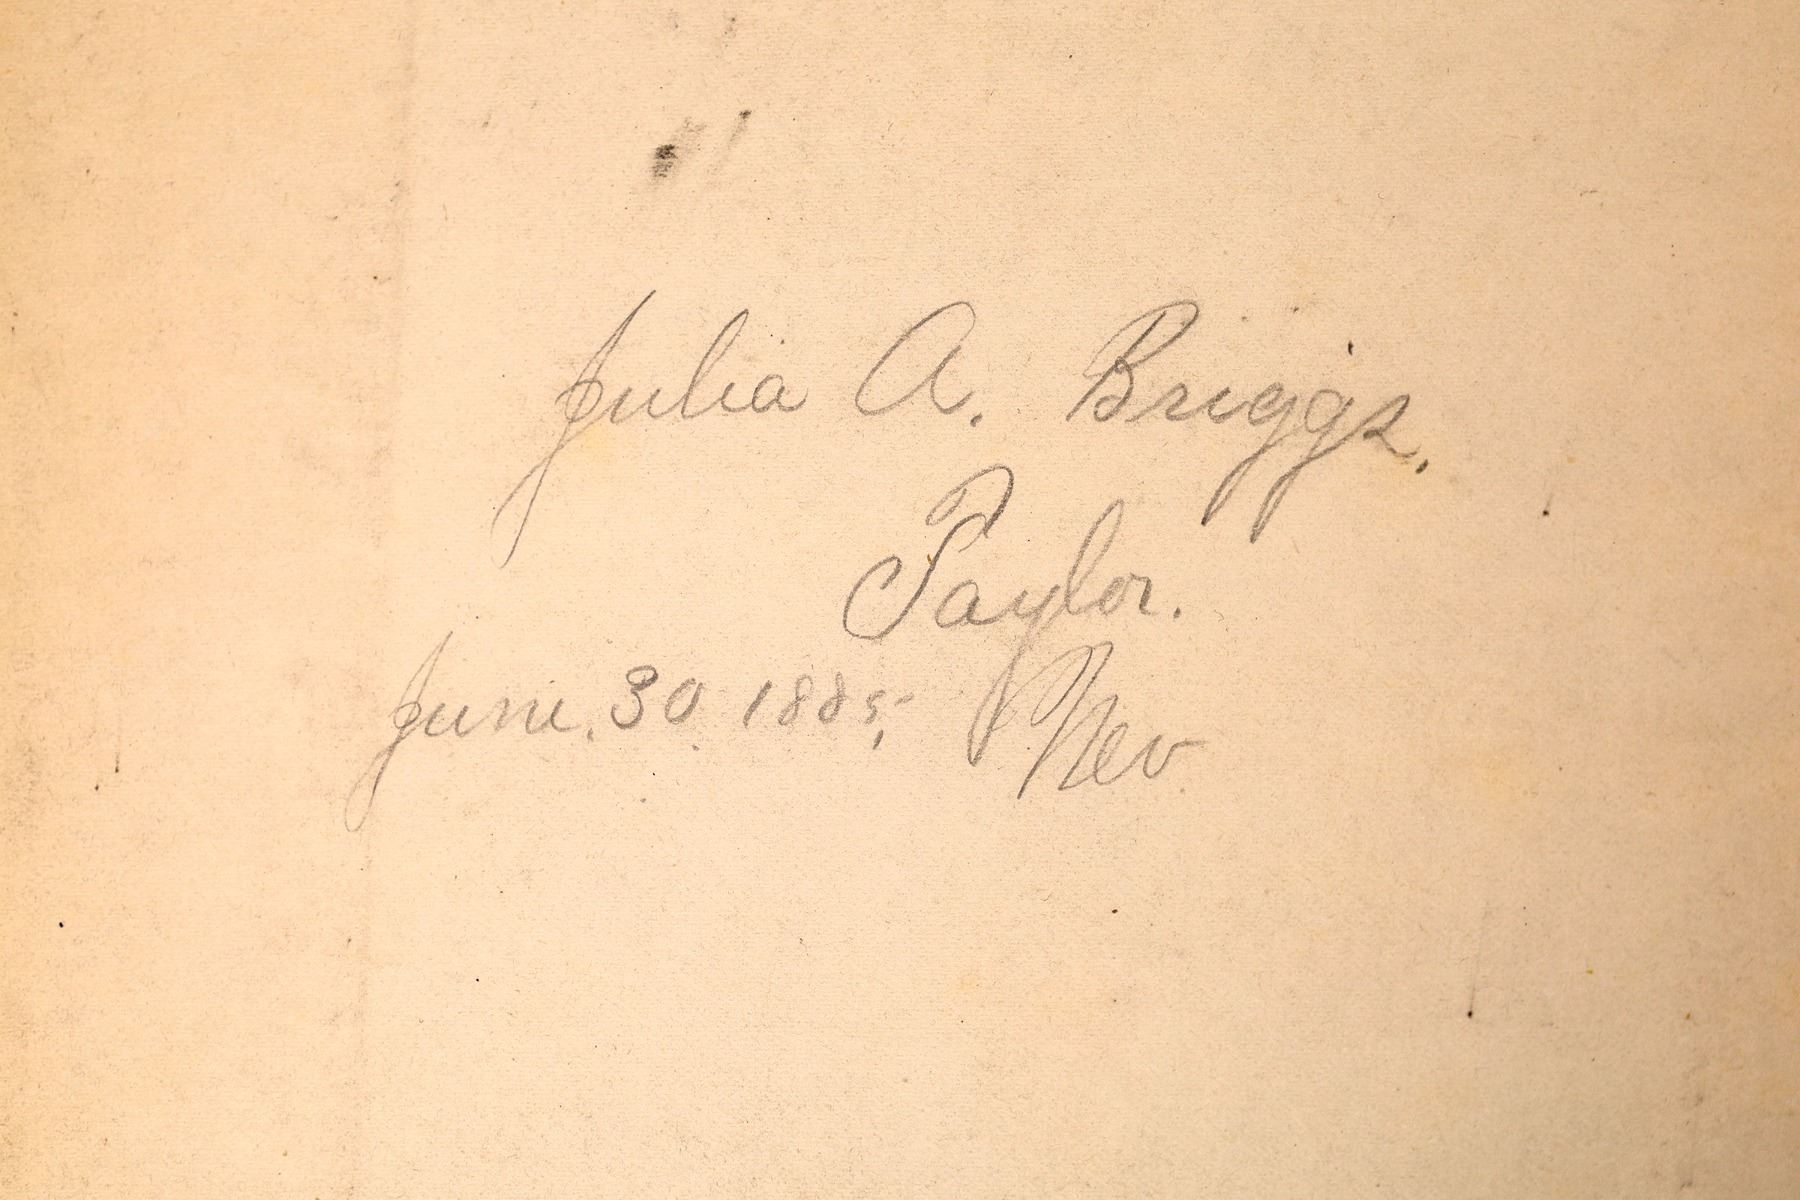 Julia A. Briggs.
Taylor.
June. 30 1885,
Nev